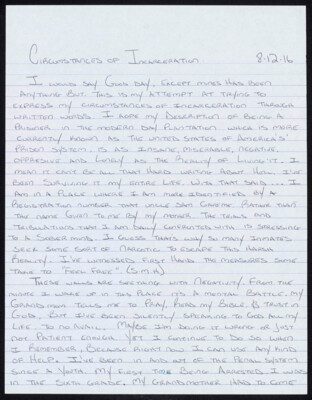 Circumstances of Incarceration 8-12-16
I would say Good Day, except mines has been
anything but. This is my attempt at trying to
express my circumstances of incarceration through
written words. I hope my description of being a
prisoner in the modern day plantation which is more
currently known as the United States of America's
Prison System, is as insane, miserable, negative,
oppressive and lonely as the reality of living it. I
mean it can't be all that hard writing about Hell. I've
been surviving it my entire life. With that said... I
am in a place where I am more identified by a
registration number that Uncle Sam gave me rather than
the name given to me by my mother. The trials and
tribulations that I am daily confronted with is
to a sober mind. I guess that's why so many inmates
seek some sort of narcotic to escape this harsh
reality. I've witnessed first hand the measures some
take to "feel free". (S.M.H)
These walls are seething with negativity. From the
minute I wake up in this place it's a mental battle. My
grandmom tells me to pray, read my Bible & trust in
God, but I've been silently speaking to God all my
life. To no avail. Maybe I'm doing it wrong or just
not patient enough. Yet I continue to do so when
I remember, because right now I can use any kind
of help. I've been in and out of the penal system
since a youth. My first time being arrested, I was
in the sixth grade. My grandmother had to come